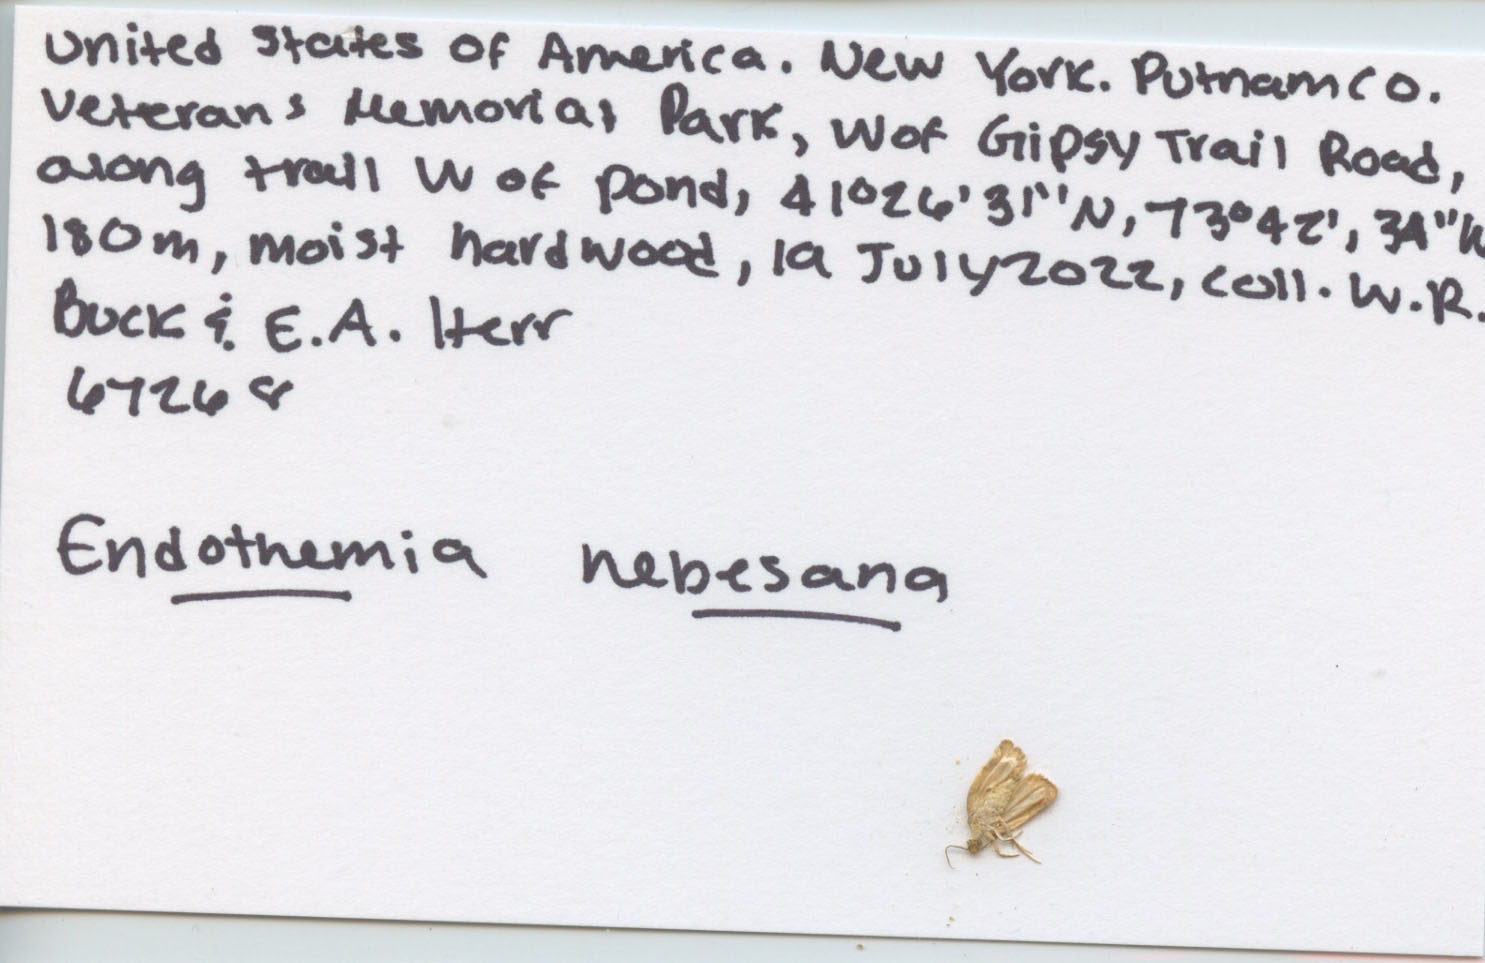 United States of America. New York. Putnam Co.
Veterans Memorial Park, W of Gipsy Trail Road,
along trail W of pond, 41°26'31"N, 73°42', 34"W
180m, moist hardwood, 19 July 2022, coll. W.R.
Buck & E.A. Herr
67268
Endothemia nebesana